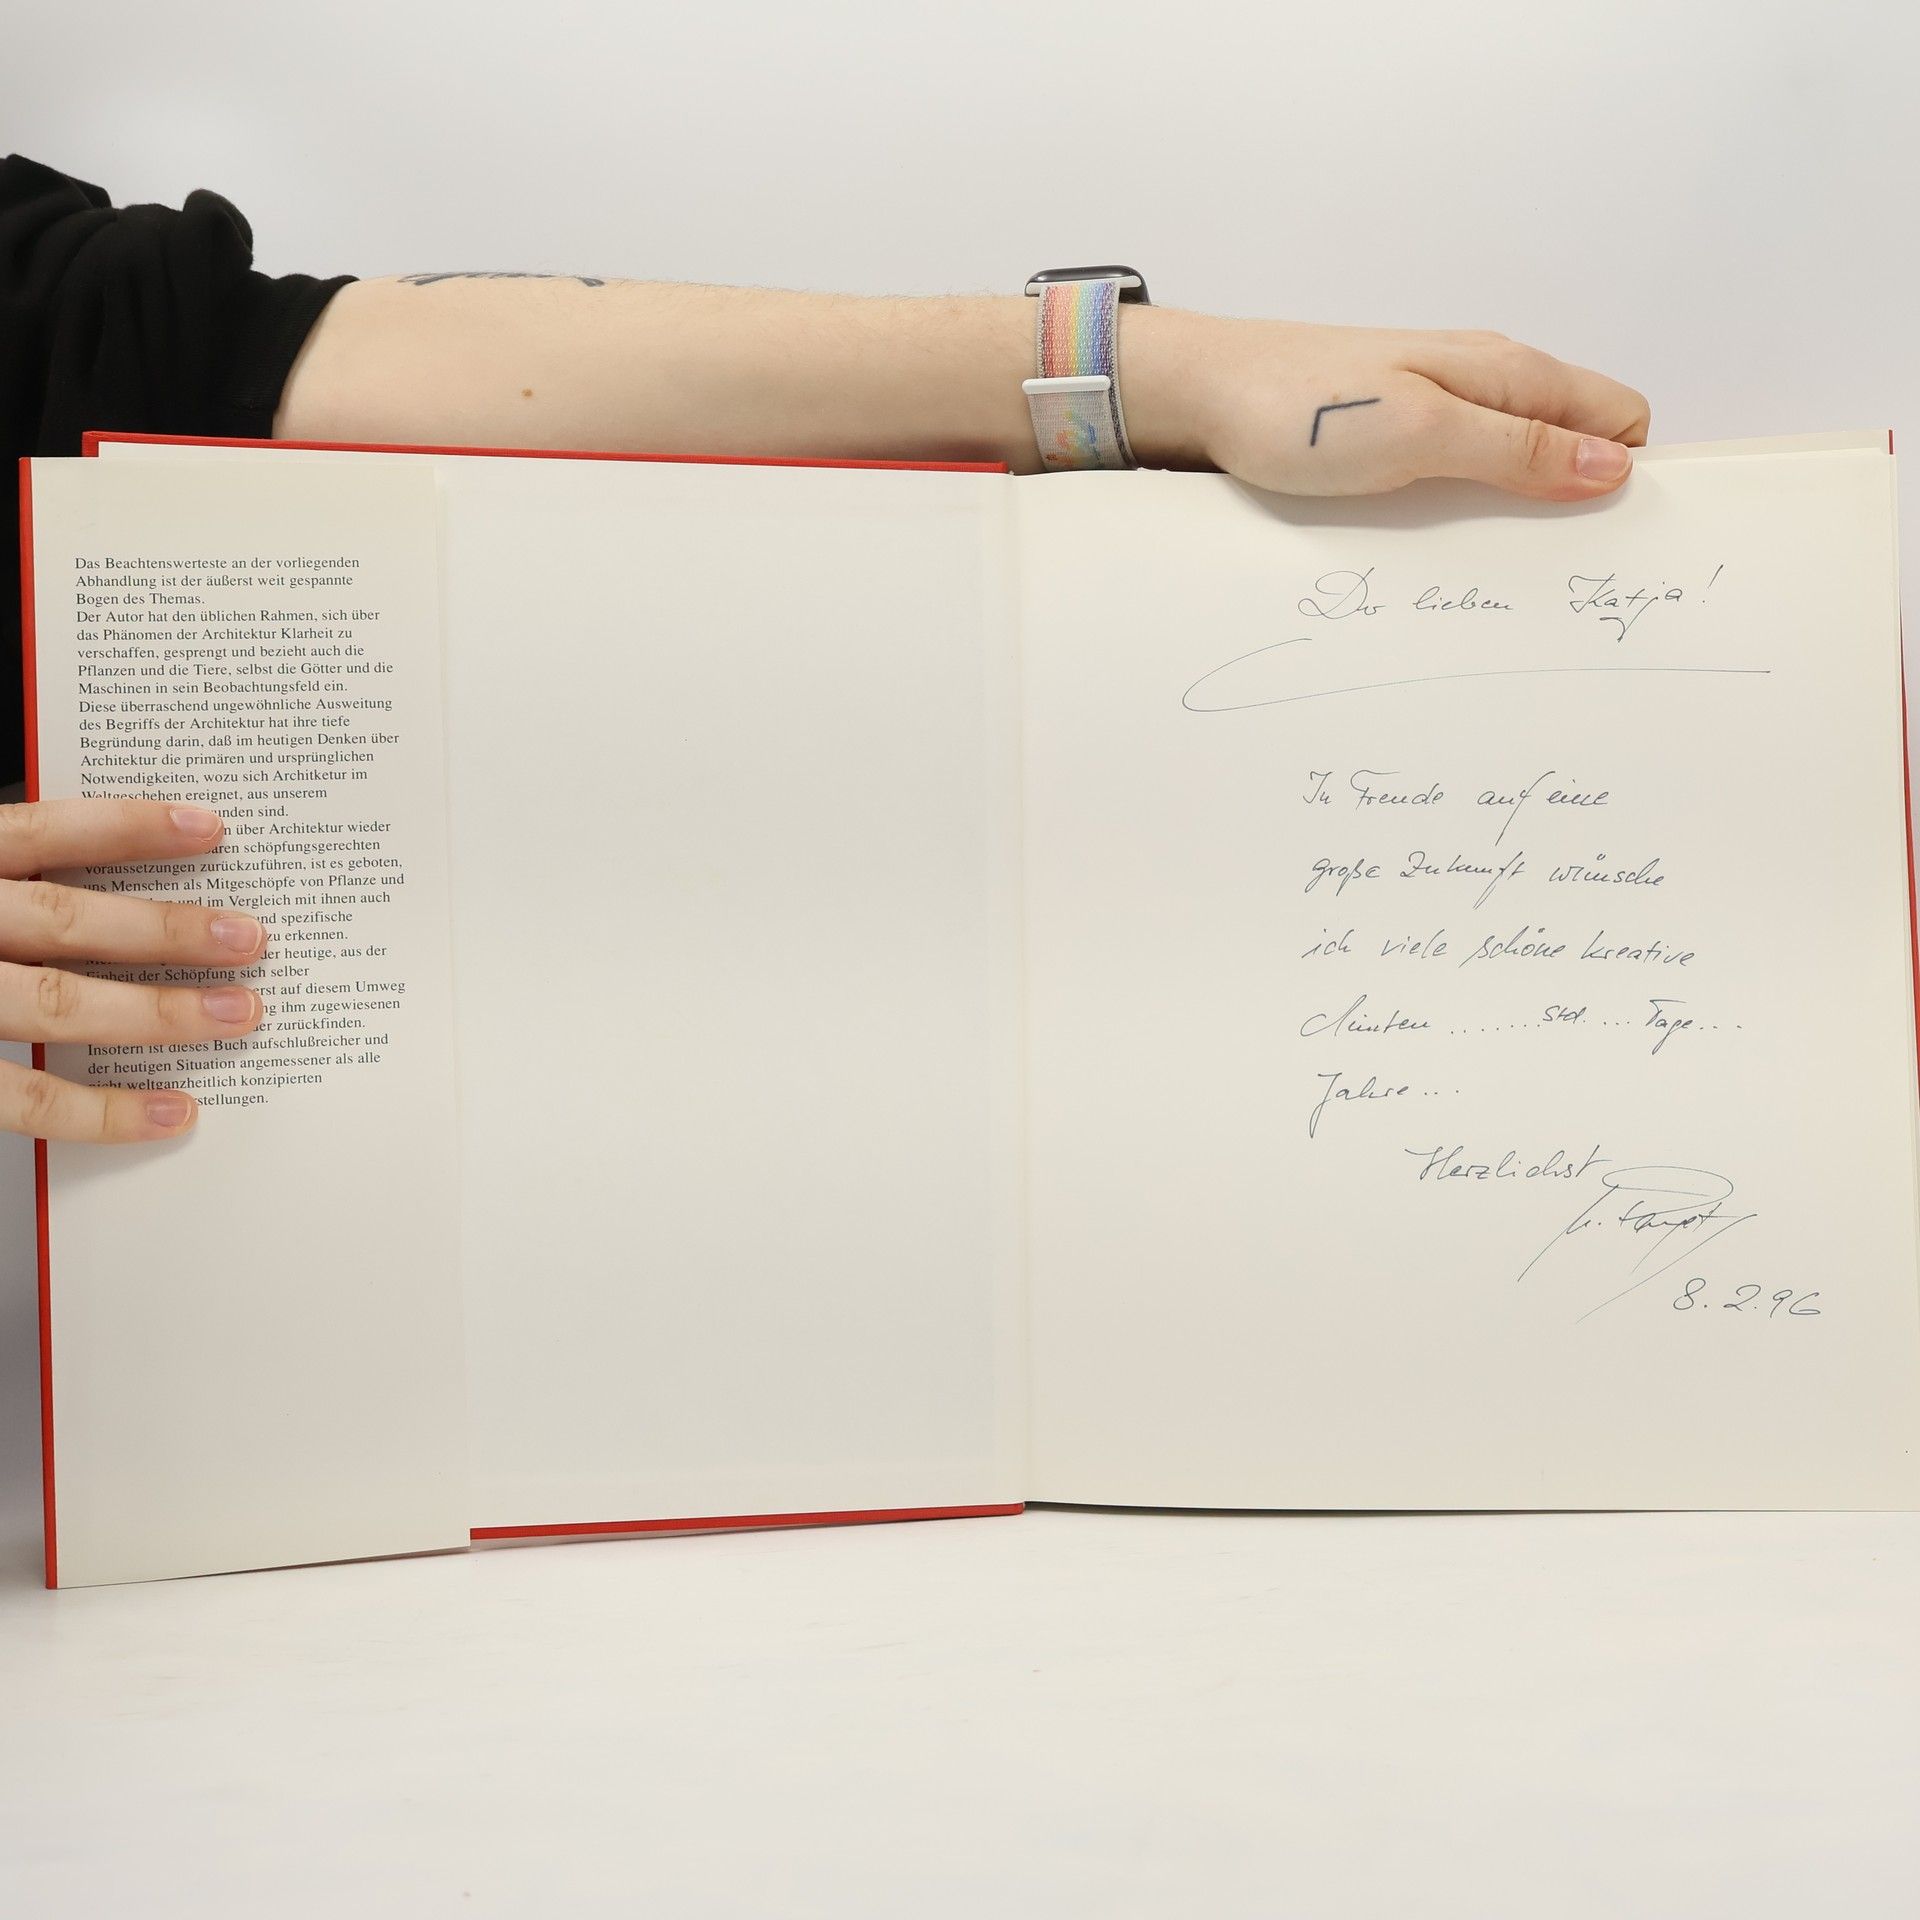 Das Beachtenswerteste an der vorliegenden
Abhandlung ist der äußerst weit gespannte
Bogen des Themas.
Der Autor hat den üblichen Rahmen, sich über
das Phänomen der Architektur Klarheit zu
verschaffen, gesprengt und bezieht auch die
Pflanzen und die Tiere, selbst die Götter und die
Maschinen in sein Beobachtungsfeld ein.
Diese überraschend ungewöhnliche Ausweitung
des Begriffs der Architektur hat ihre tiefe
Begründung darin, daß im heutigen Denken über
Architektur die primären und ursprünglichen
Notwendigkeiten, wozu sich Architketur im
Weltgeschehen ereignet, aus unserem
sind.
über Architektur wieder
schöpfungsgerechten
Voraussetzungen zurückzuführen, ist es geboten,
uns Menschen als Mitgeschöpfe von Pflanze und
und im Vergleich mit ihnen auch
und spezifische
zu erkennen.
der heutige, aus der
Einheit der Schöpfung sich selber
erst auf diesem Umweg
ihm zugewiesenen
zurückfinden.
Insofern ist dieses Buch aufschlußreicher und
der heutigen Situation angemessener als alle
nicht weltganzheitlich konzipierten
Der lieben Katja!
In Freude auf eine
große Zukunft wünsche
ich viele schöne kreative
Minuten ....... Std. ... Tage...
Jahre...
Herzlichst
8.2.96